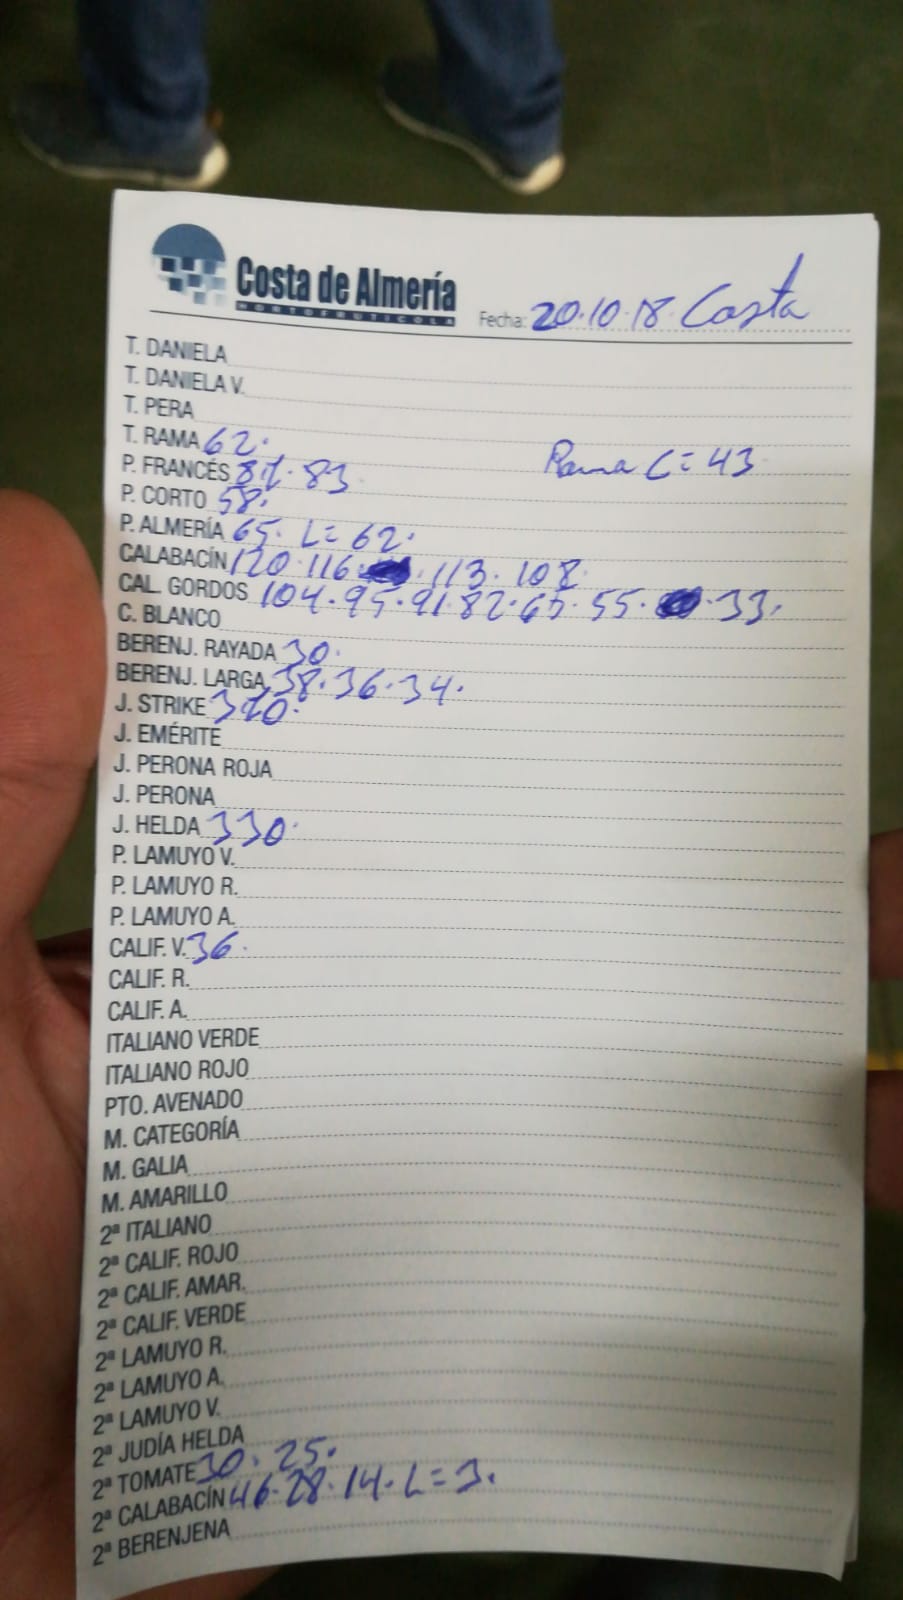 Costa de Almería
HORTOFRUTICOLA
Fecha: 20.10.18. Costa
T. DANIELA
T. DANIELA V.
T. PERA
T. RAMA 62. Rama C = 43
P. FRANCÉS 87. 83
P. CORTO 58.
P. ALMERÍA 65. L = 62.
CALABACÍN 120. 116. 113. 108.
CAL. GORDOS 104. 95. 91. 82. 65. 55. 33.
C. BLANCO
BERENJ. RAYADA 30.
BERENJ. LARGA 38. 36. 34.
J. STRIKE 370.
J. EMÉRITE
J. PERONA ROJA
J. PERONA
J. HELDA 330.
P. LAMUYO V.
P. LAMUYO R.
P. LAMUYO A.
CALIF. V. 36.
CALIF. R.
CALIF. A.
ITALIANO VERDE
ITALIANO ROJO
PTO. AVENADO
M. CATEGORÍA
M. GALIA
M. AMARILLO
2ª ITALIANO
2ª CALIF. ROJO
2ª CALIF. AMAR.
2ª CALIF. VERDE
2ª LAMUYO R.
2ª LAMUYO A.
2ª LAMUYO V.
2ª JUDÍA HELDA
2ª TOMATE 30. 25.
2ª CALABACÍN 46. 28. 14. L = 3.
2ª BERENJENA